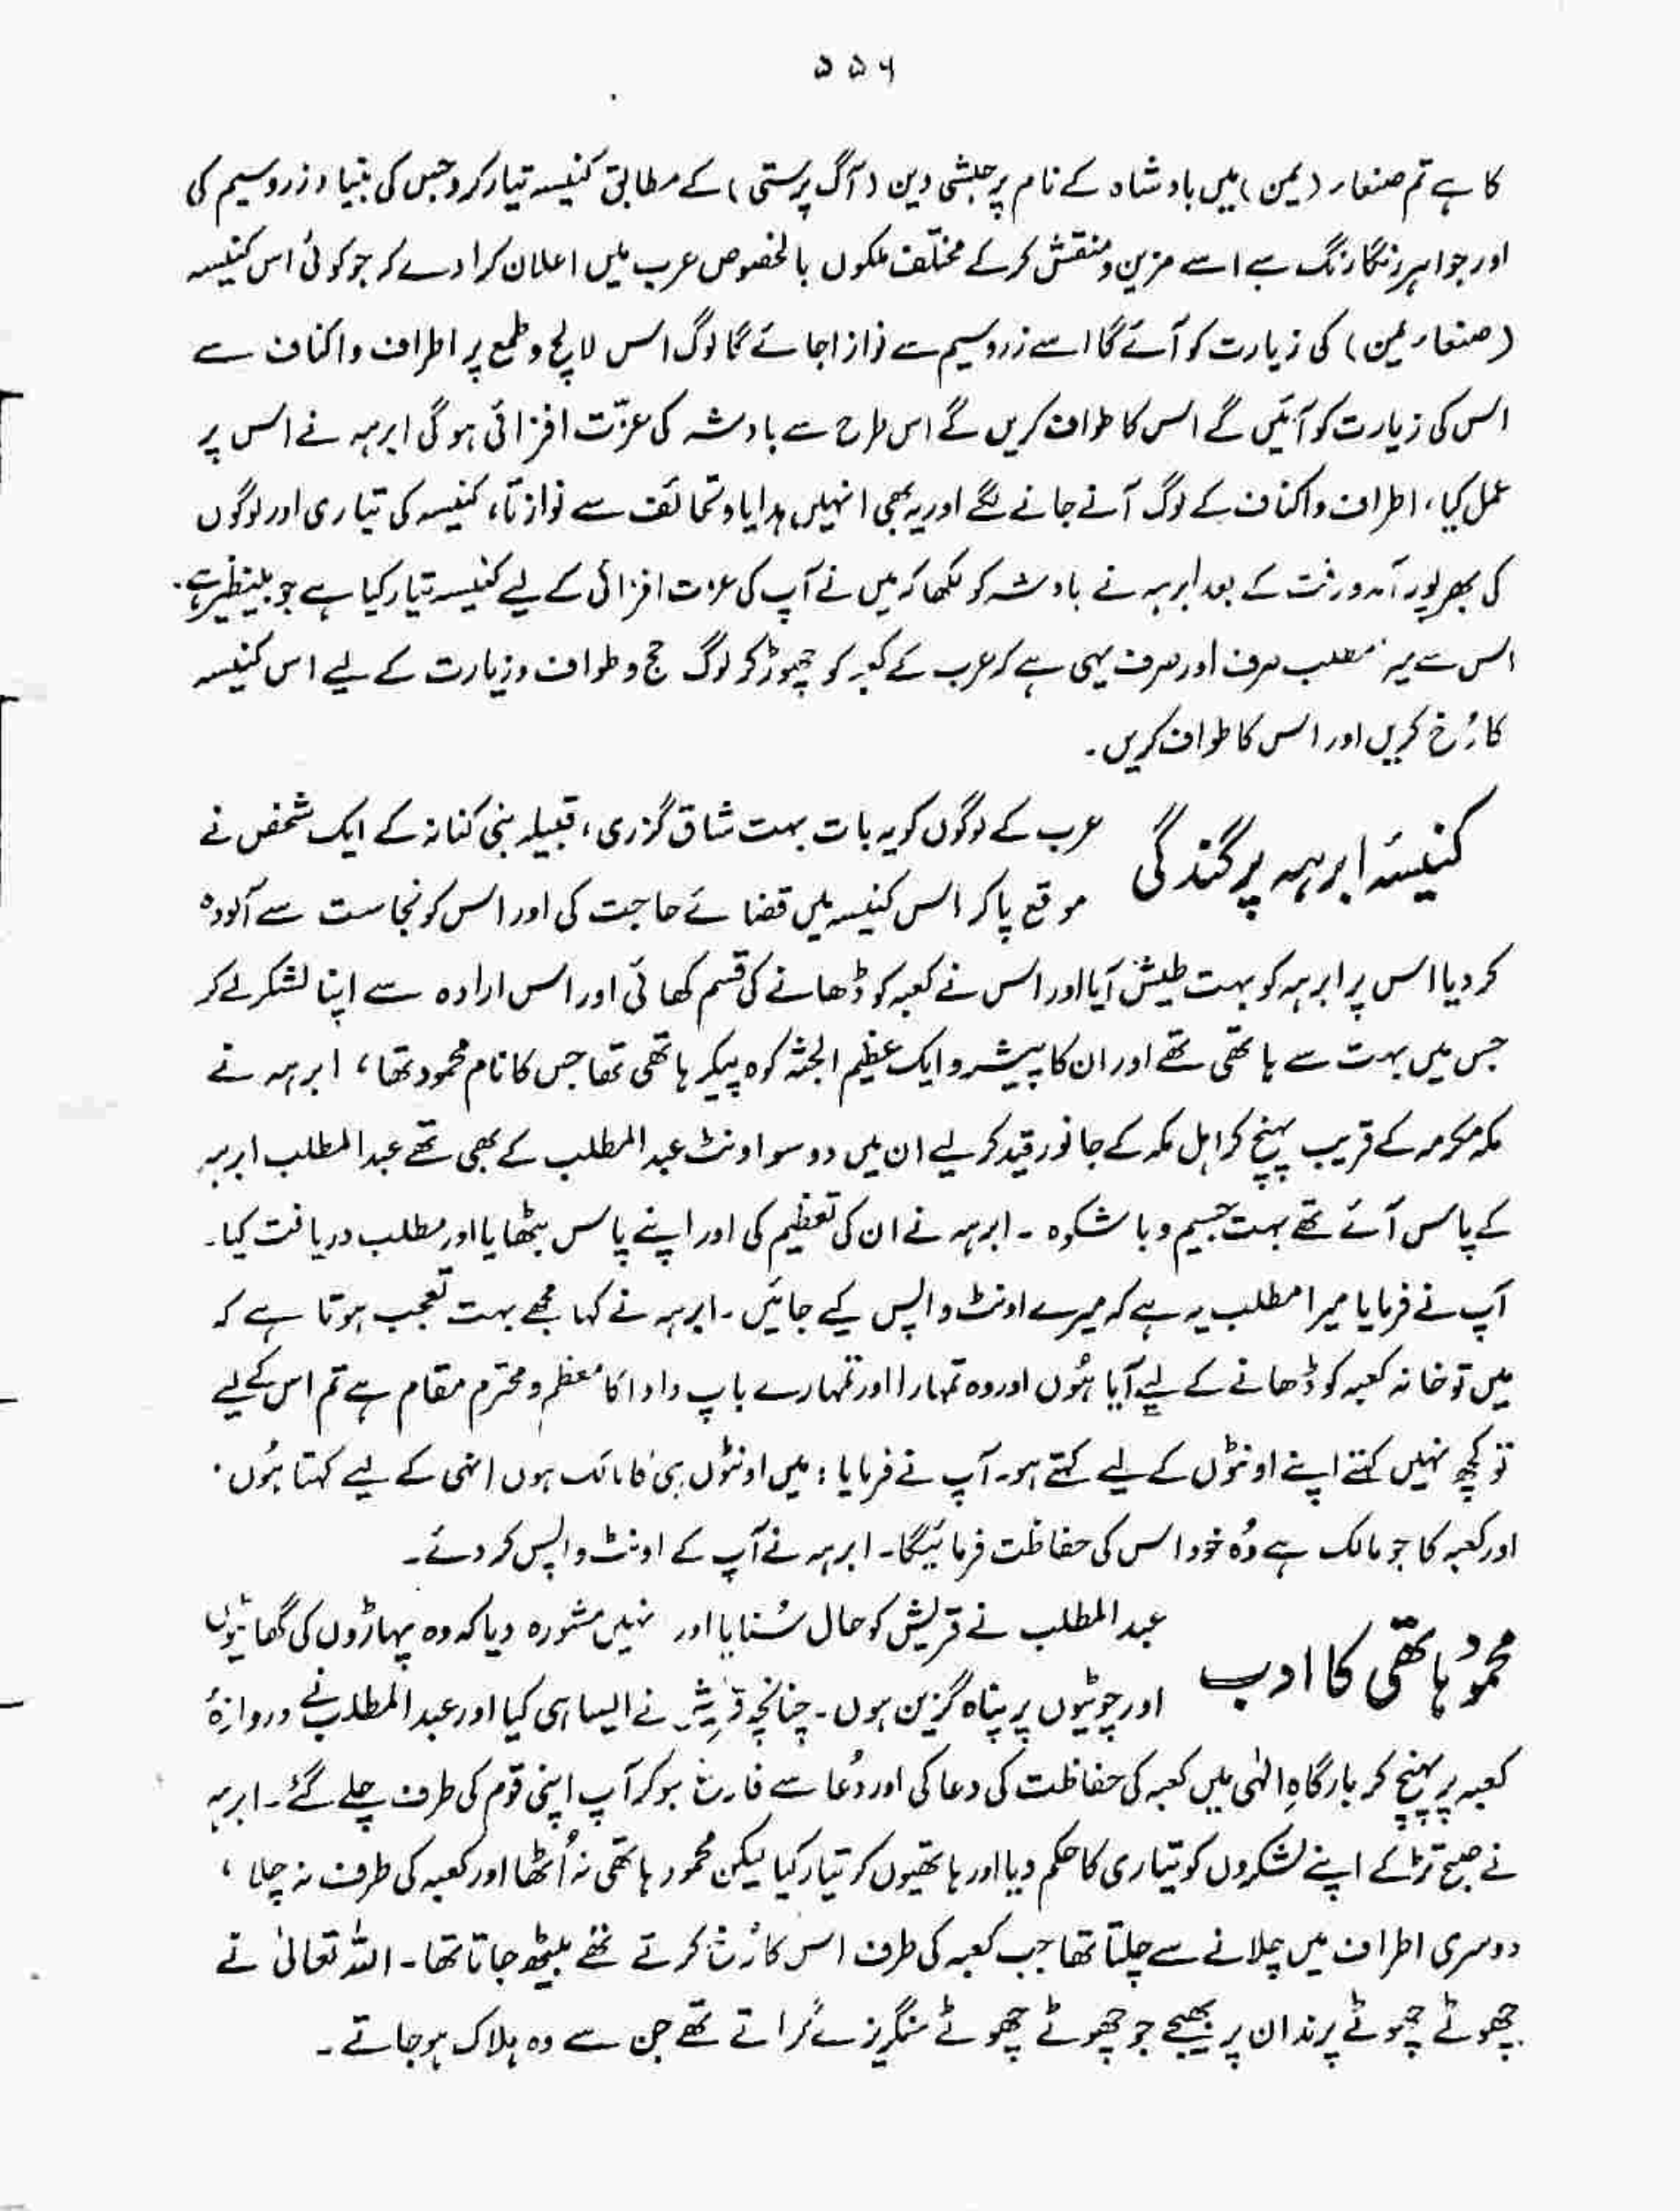 ۵۵۶
کا ہے تم صنعاء (یمن) میں بادشاہ کے نام پر حبشی دین (آگ پرستی) کے مطابق کنیسہ تیار کرو جس کی بنیاد زر و سیم کی
اور جواہر رنگا رنگ سے اسے مزین و منقش کر کے مختلف ملکوں بالخصوص عرب میں اعلان کرا دے کہ جو کوئی اس کنیسہ
(صنعاء یمن) کی زیارت کو آئے گا اسے زر و سیم سے نوازا جائے گا لوگ اس لالچ و طمع پر اطراف و اکناف سے
اس کی زیارت کو آئیں گے اس کا طواف کریں گے اس طرح سے بادشہ کی عزّت افزائی ہو گی ابرہہ نے اس پر
عمل کیا، اطراف و اکناف کے لوگ آنے جانے لگے اور یہ بھی انہیں ہدایا و تحائف سے نوازتا، کنیسہ کی تیاری اور لوگوں
کی بھرپور آمد و رفت کے بعد ابرہہ نے بادشہ کو لکھا کہ میں نے آپ کی عزت افزائی کے لیے کنیسہ تیار کیا ہے جو بینظیر ہے۔
اس سے میرا مطلب صرف اور صرف یہی ہے کہ عرب کے کعبہ کو چھوڑ کر لوگ حج و طواف و زیارت کے لیے اس کنیسہ
کا رُخ کریں اور اس کا طواف کریں۔
کنیسۂ ابرہہ پر گندگی عرب کے لوگوں کو یہ بات بہت شاق گزری، قبیلہ بنی کنانہ کے ایک شخص نے
موقع پا کر اس کنیسہ میں قضائے حاجت کی اور اس کو نجاست سے آلودہ
کر دیا اس پر ابرہہ کو بہت طیش آیا اور اس نے کعبہ کو ڈھانے کی قسم کھائی اور اس ارادہ سے اپنا لشکر لے کر
جس میں بہت سے ہاتھی تھے اور ان کا پیشرو ایک عظیم الجثہ کوہ پیکر ہاتھی تھا جس کا نام محمود تھا، ابرہہ نے
مکہ مکرمہ کے قریب پہنچ کر اہل مکہ کے جانور قید کر لیے ان میں دو سو اونٹ عبدالمطلب کے بھی تھے عبدالمطلب ابرہہ
کے پاس آئے تھے بہت جسیم و باشکوہ ۔ ابرہہ نے ان کی تعظیم کی اور اپنے پاس بٹھایا اور مطلب دریافت کیا۔
آپ نے فرمایا میرا مطلب یہ ہے کہ میرے اونٹ واپس کیے جائیں۔ ابرہہ نے کہا مجھے بہت تعجب ہوتا ہے کہ
میں تو خانہ کعبہ کو ڈھانے کے لیے آیا ہُوں اور وہ تمہارا اور تمہارے باپ دادا کا معظم و محترم مقام ہے تم اس کے لیے
تو کچھ نہیں کہتے اپنے اونٹوں کے لیے کہتے ہو۔ آپ نے فرمایا : میں اونٹوں ہی کا مالک ہوں انہی کے لیے کہتا ہُوں۔
اور کعبہ کا جو مالک ہے وُہ خود اس کی حفاظت فرمائیگا۔ ابرہہ نے آپ کے اونٹ واپس کر دئے۔
محمود ہاتھی کا ادب عبدالمطلب نے قریش کو حال سُنایا اور انہیں مشورہ دیا کہ وہ پہاڑوں کی گھاٹیوں
اور چوٹیوں پر پناہ گزین ہوں۔ چنانچہ قریش نے ایسا ہی کیا اور عبدالمطلب نے دروازۂ
کعبہ پر پہنچ کر بارگاہِ الٰہی میں کعبہ کی حفاظت کی دعا کی اور دُعا سے فارغ ہو کر آپ اپنی قوم کی طرف چلے گئے۔ ابرہہ
نے صبح تڑکے اپنے لشکروں کو تیاری کا حکم دیا اور ہاتھیوں کو تیار کیا لیکن محمود ہاتھی نہ اُٹھا اور کعبہ کی طرف نہ چلا ،
دوسری اطراف میں چلانے سے چلتا تھا جب کعبہ کی طرف اس کا رُخ کرتے تھے بیٹھ جاتا تھا۔ اللہ تعالیٰ نے
چھوٹے چھوٹے پرند ان پر بھیجے جو چھوٹے چھوٹے سنگریزے گراتے تھے جن سے وہ ہلاک ہو جاتے۔